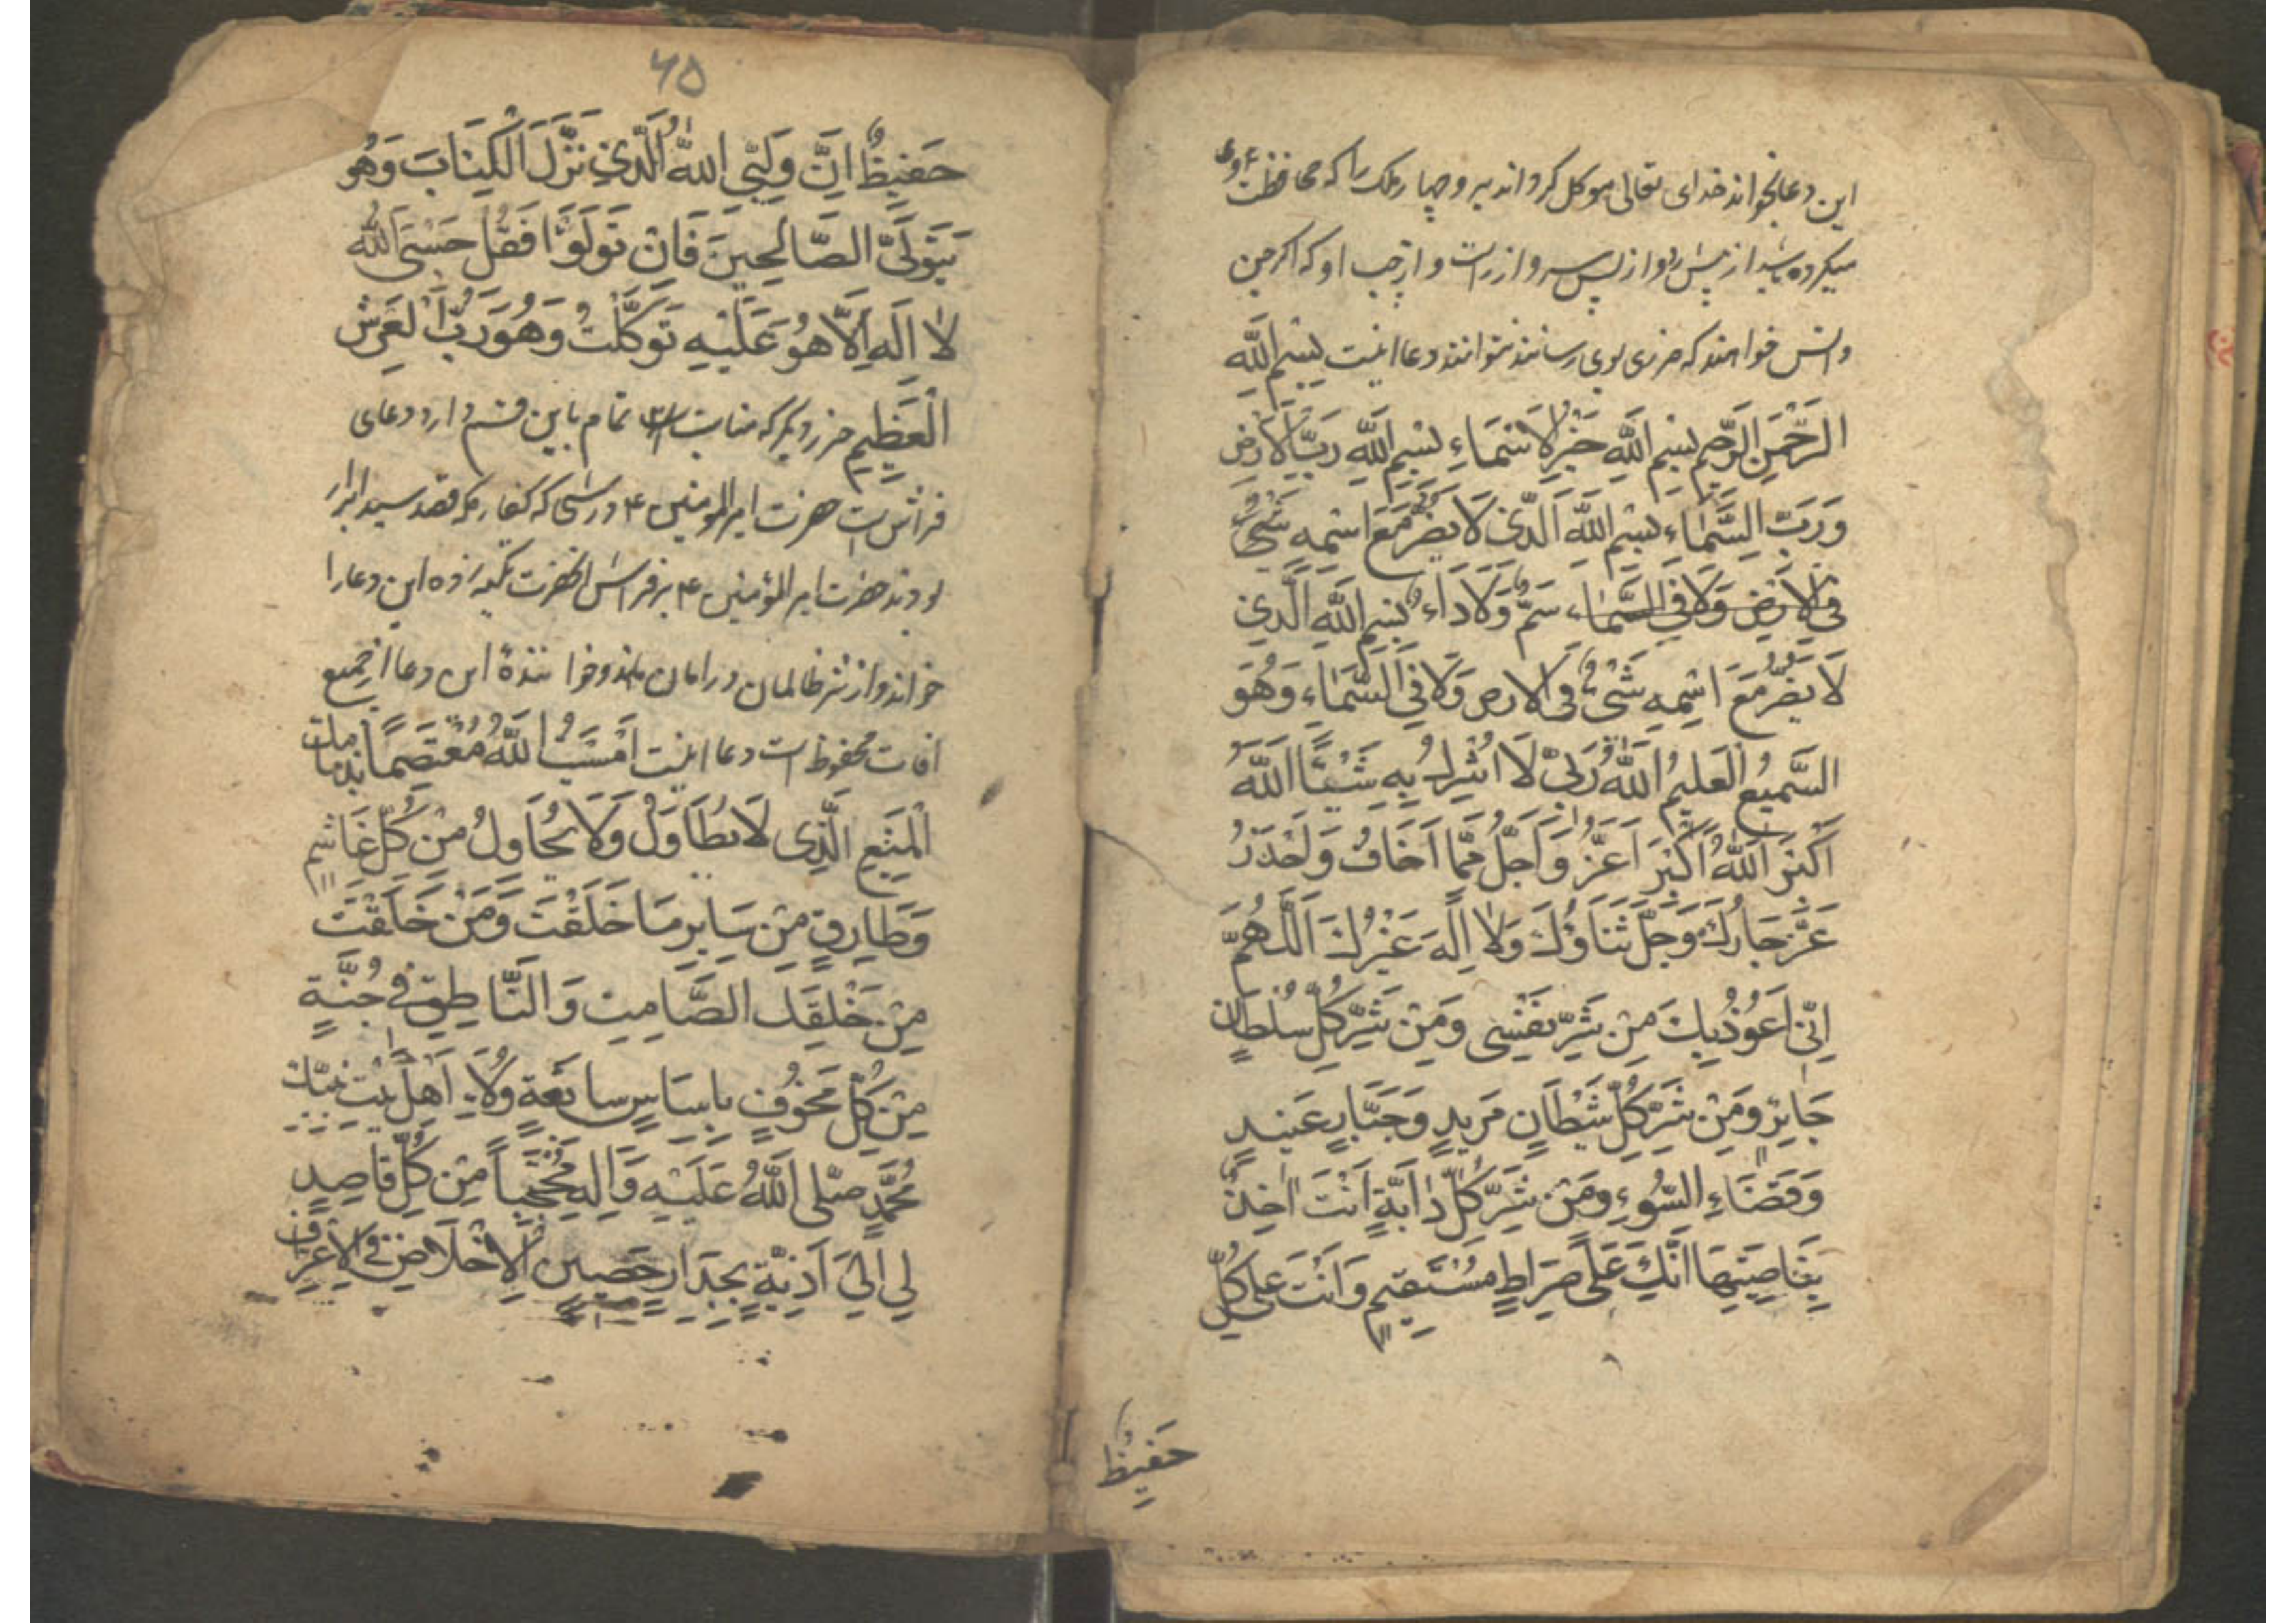 این دعا بخواند خدای تعالی موکل کرداند بر وی چهار ملک را که محافظت او
میکرده باشند از پیش رو و از پس سر و از راست و از چپ او که اکر جن
و انس خواهند که ضرری بوی رسانند نتوانند دعا اینست بِسْمِ اللَّهِ
الرَّحْمَنِ الرَّحِیمِ بِسْمِ اللَّهِ خَیْرِ الْاَسْمَاءِ بِسْمِ اللَّهِ رَبِّ الْاَرْضِ
وَرَبِّ السَّمَاءِ بِسْمِ اللَّهِ الَّذِی لَا یَضُرُّ مَعَ اسْمِهِ شَیْءٌ
فِی الْاَرْضِ وَلَا فِی السَّمَاءِ سَمٌّ وَلَا دَاءٌ بِسْمِ اللَّهِ الَّذِی
لَا یَضُرُّ مَعَ اسْمِهِ شَیْءٌ فِی الْاَرْضِ وَلَا فِی السَّمَاءِ وَهُوَ
السَّمِیعُ الْعَلِیمُ اللَّهُ رَبِّی لَا اُشْرِكُ بِهِ شَیْئًا اَللَّهُ
اَكْبَرُ اَللَّهُ اَكْبَرُ اَعَزُّ وَاَجَلُّ مِمَّا اَخَافُ وَاَحْذَرُ
عَزَّ جَارُكَ وَجَلَّ ثَنَاؤُكَ وَلَا اِلَهَ غَیْرُكَ اَللَّهُمَّ
اِنِّی اَعُوذُ بِكَ مِنْ شَرِّ نَفْسِی وَمِنْ شَرِّ كُلِّ سُلْطَانٍ
جَایِرٍ وَمِنْ شَرِّ كُلِّ شَیْطَانٍ مَرِیدٍ وَجَبَّارٍ عَنِیدٍ
وَقَضَاءِ السُّوءِ وَمِنْ شَرِّ كُلِّ دَابَّةٍ اَنْتَ اٰخِذٌ
بِنَاصِیَتِهَا اِنَّكَ عَلَى صِرَاطٍ مُسْتَقِیمٍ وَاَنْتَ عَلَى كُلِّ
حَفِیظٌ
۶۵
حَفِیظٌ اِنَّ وَلِیِّیَ اللَّهُ الَّذِی نَزَّلَ الْكِتَابَ وَهُوَ
یَتَوَلَّى الصَّالِحِینَ فَاِنْ تَوَلَّوْا فَقُلْ حَسْبِیَ اللَّهُ
لَا اِلَهَ اِلَّا هُوَ عَلَیْهِ تَوَكَّلْتُ وَهُوَ رَبُّ الْعَرْشِ
الْعَظِیمِ حرز دیکر که تمام باین قسم دارد دعای
فراش است حضرت امیرالمومنین ع در شبی که کفار مکه قصد سید ابرار
بودند حضرت امیرالمؤمنین ع بر فراش انحضرت تکیه زده این دعا را
خواند و از شر ظالمان در امان ماند و خوانندهٔ این دعا از جمیع
افات محفوظ است دعا اینست اَمْسَیْتُ اَللَّهُمَّ مُعْتَصِمًا بِذِمَامِكَ
الْمَنِیعِ الَّذِی لَا یُطَاوَلُ وَلَا یُحَاوَلُ مِنْ كُلِّ غَاشِمٍ
وَطَارِقٍ مِنْ سَایِرِ مَا خَلَقْتَ وَمَنْ خَلَقْتَ
مِنْ خَلْقِكَ الصَّامِتِ وَالنَّاطِقِ فِی جُنَّةٍ
مِنْ كُلِّ مَخُوفٍ بِلِبَاسٍ سَابِغَةٍ وَلَاءِ اَهْلِ بَیْتِ نَبِیِّكَ
مُحَمَّدٍ صَلَّى اللَّهُ عَلَیْهِ وَاٰلِهِ مُحْتَجِبًا مِنْ كُلِّ قَاصِدٍ
لِی اِلَى اَذِیَّةٍ بِجِدَارٍ حَصِینِ الْاِخْلَاصِ فِی الْاِعْتِرَافِ